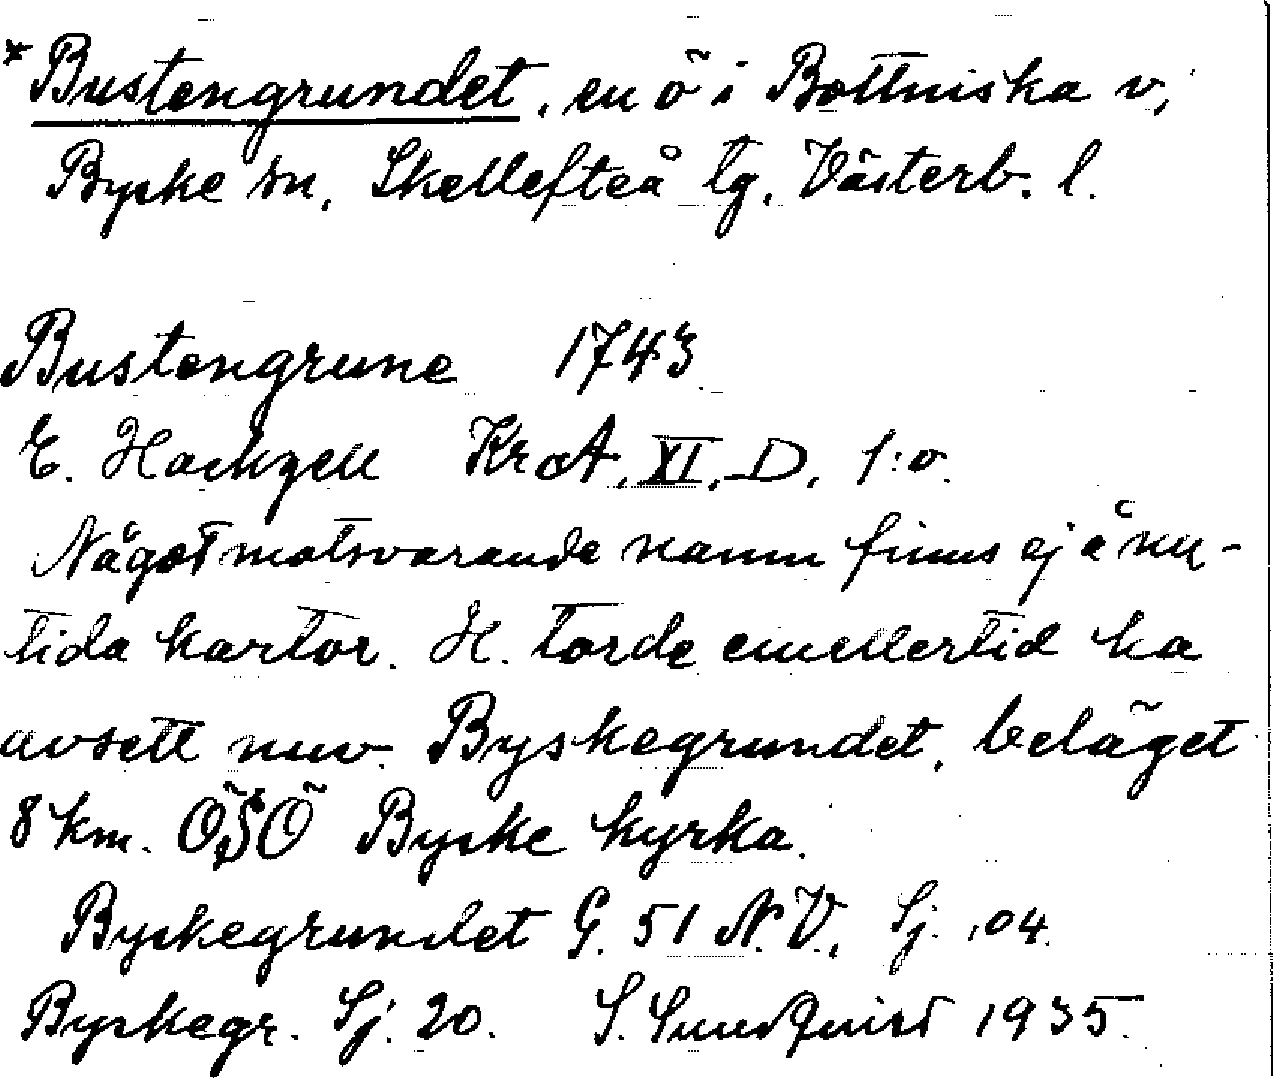 *Bustengrundet, en ö i Bottniska v,
Byske sn, Skellefteå tg, Västerb. l.
Bustengrune 1743
E. Hackzell KrA, XI, D, 1:o.
Något motsvarande namn finns ej å nu-
tida kartor. H. torde emellertid ha
avsett nuv. Byskegrundet, beläget
8 km. ÖSÖ Byske kyrka.
Byskegrundet G. 51 N.V., Sj. 104.
Byskegr. Sj. 20. S. Sundquist 1935.